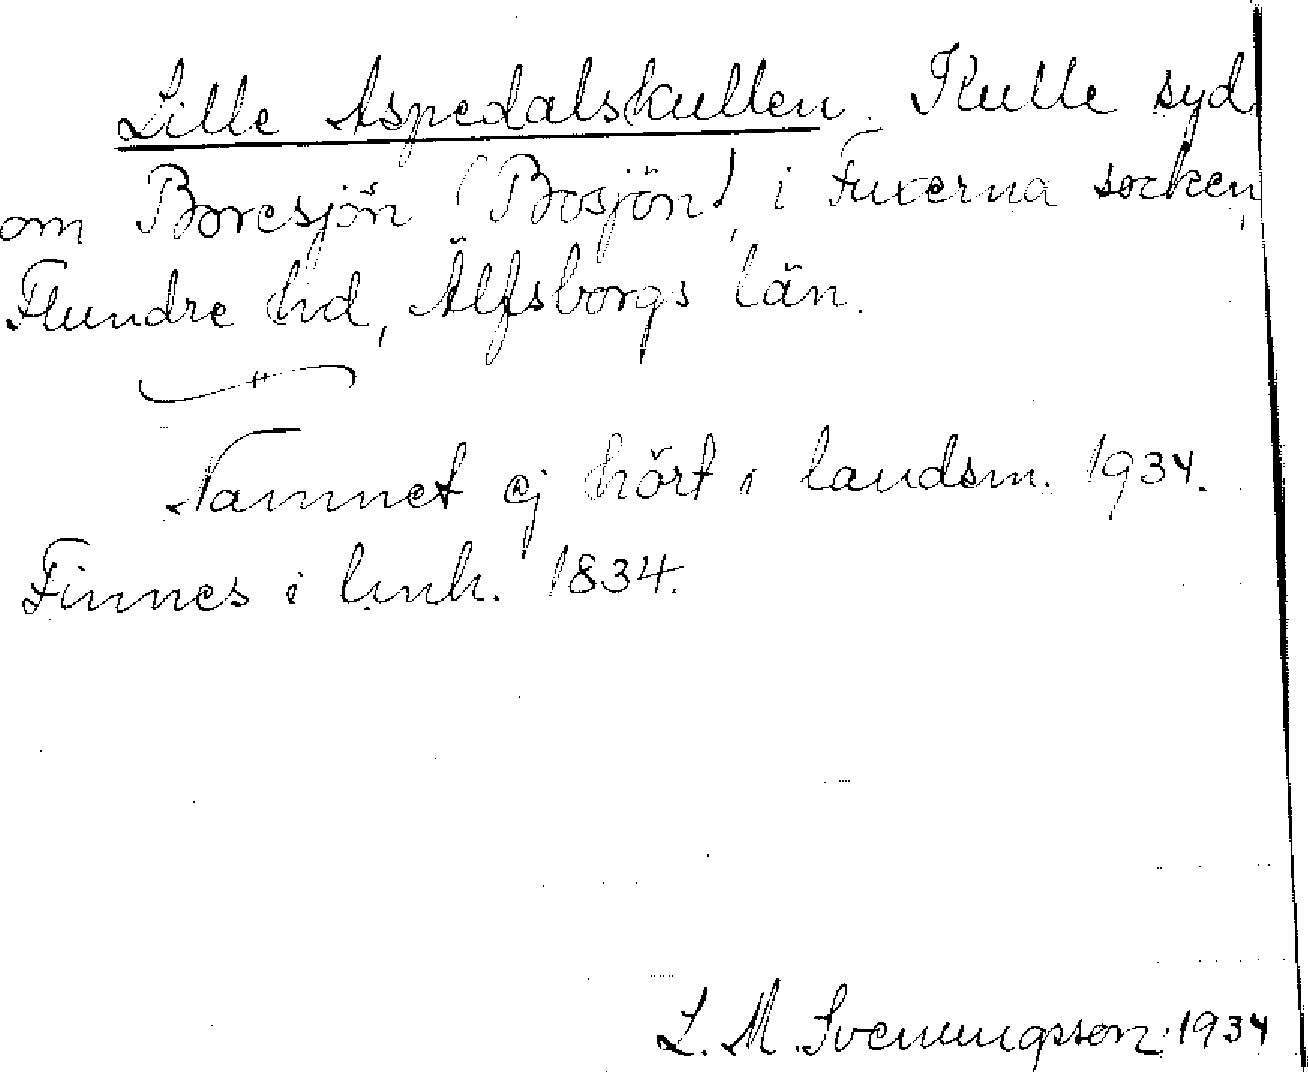 Lille Aspedalskullen. Kulle syd
om Boresjön (Bosjön), i Fuxerna socken,
Flundre hd, Älfsborgs län.
Namnet ej hört i landsm. 1934.
Finnes i lmh. 1834.
L. M. Svenungsson. 1934